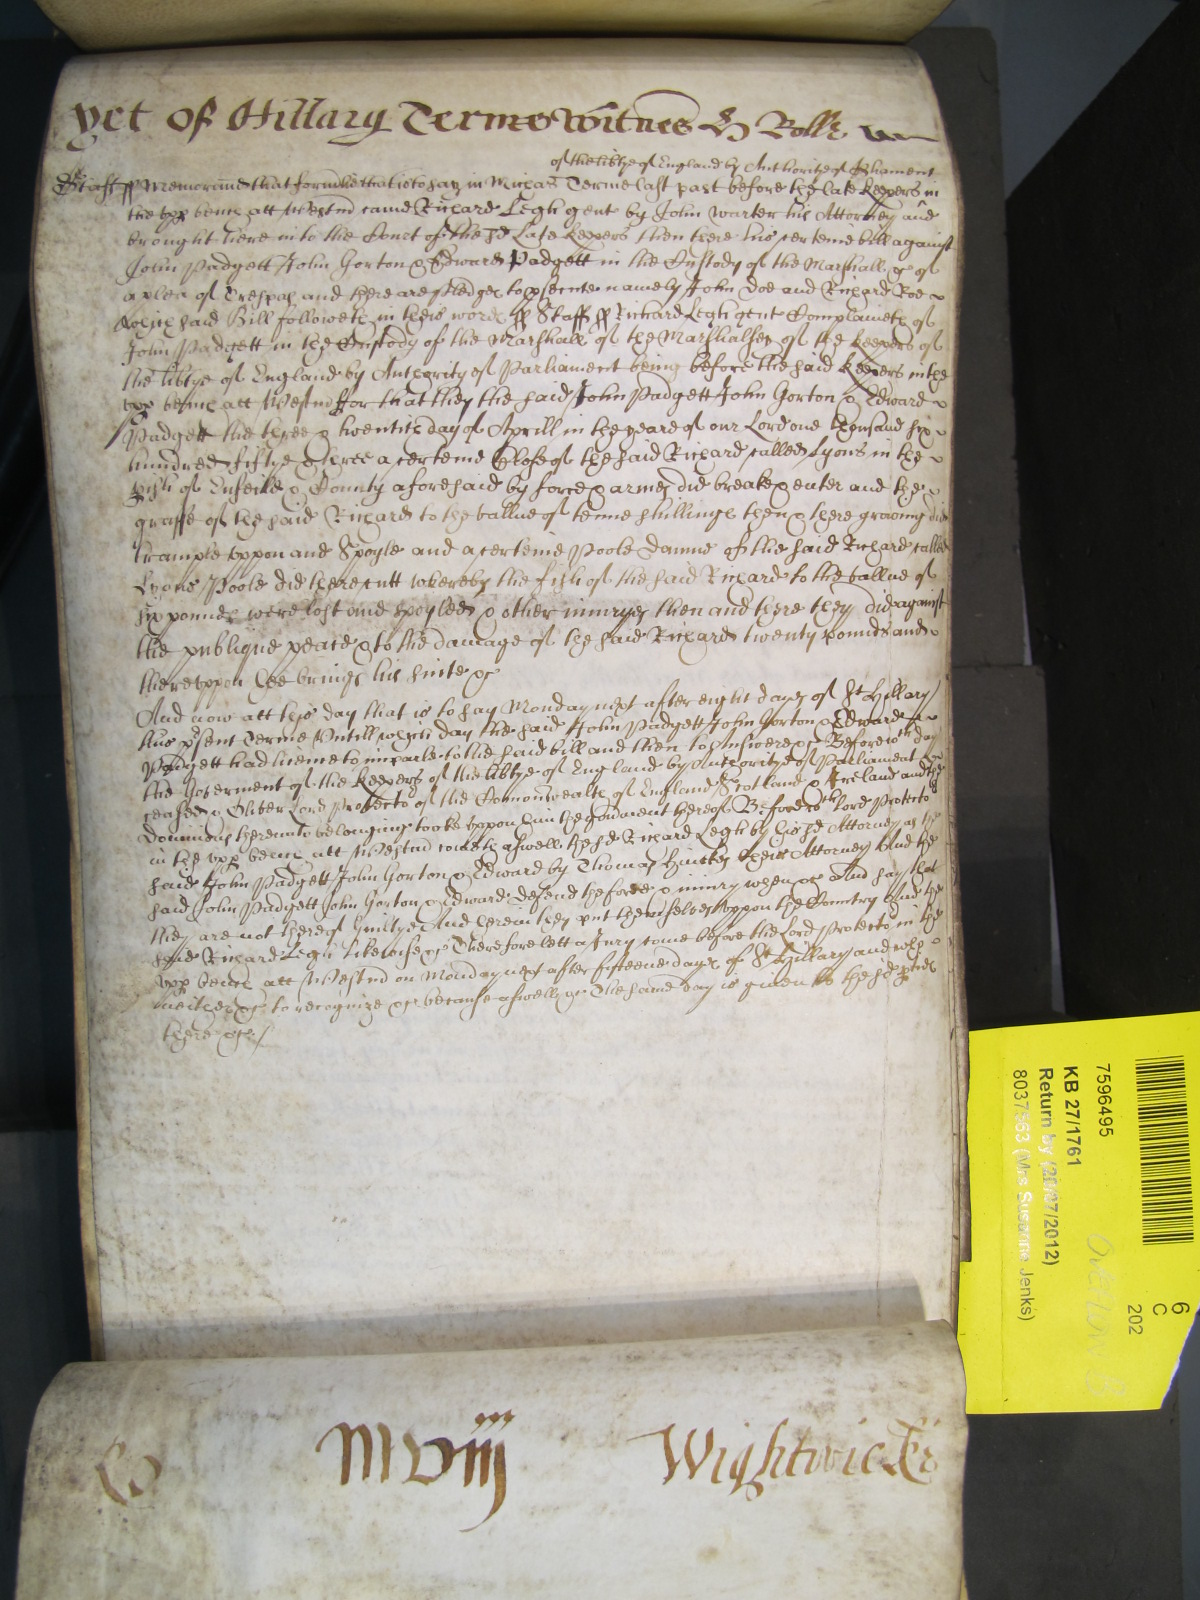 yet of Hillary Terme Witnes H Rolle
of the lib'tye of England by Authoritie of P'liament
Staff ss Memorand that formerlie that is to say in Mich'as Terme last past before the late keepers in
the upp bench att Westm'd came Richard Legh gent by John Warter his Attorney and
brought here into the Court of the s'd Late keepers then there his certeine bill against
John Padgett John Gorton & Edward Padgett in the Custody of the Marshall &c of
a plea of Trespas and there are pledges to p'secute namely John Doe and Richard Roe
which said Bill followeth in these words ss Staff ss Richard Legh gent Complaineth of
John Padgett in the Custody of the Marshall of the Marshalsey of the keepers of
the lib'tye of England by Authority of Parliament being before the said keepers in the
upp bench att Westm'd for that they the said John Padgett John Gorton & Edward
Padgett the three & twentith day of Aprill in the yeare of our Lord one thousand six
hundred fiftye & three a certeine Close of the said Richard called Lyons in the
p'ish of & County aforesaid by force & armes did breake & enter and the
grasse of the said Richard to the vallue of tenne shillings then & there growing did
trample uppon and Spoyle and a certeine Poole damme of the said Richard called
Lyons Poole did there cutt whereby the fish of the said Richard to the vallue of
six pounds were lost and spoyled & other iniuryes then and there they did against
the publique peace & to the damage of the said Richard twenty pounds and
thereuppon hee brings his suite &c
And now att this day that is to say Monday next after eight dayes of St Hillary
this p'sent Terme Untill which day the said John Padgett John Gorton & Edward
Padgett had licence to imparle to the said bill and then to Answere &c Before w'ch day
the Goverment of the keepers of the lib'tye of England by Authoritye of Parliament
ceased & Oliver Lord Protecto' of the Commonwealth of England Scotland & Ireland and the
Dominions thereunto belonging tooke uppon him the Goverment thereof Before w'ch Lord Protecto'
in the upp bench att Westm'd cometh aswell the s'd Richard Legh by his s'd Attorney as the
said John Padgett John Gorton & Edward by Thomas their Attorney And the
said John Padgett John Gorton & Edward defend the force & iniury when &c And say that
they are not thereof Guiltye And herein they put themselves uppon the Countrey And the
said Richard Legh likewise &c Therefore lett a Jury come before the Lord Protecto' in the
upp bench att Westm'd on Monday next after fifteene dayes of St Hillary and who
neither &c to recognize &c because aswell &c The same day is given to the s'd p'ties
there &c
M D iiij Wightwick
7596495
KB 27/1761
Return by (20/07/2012)
(Mrs Susanne Jenks)
6
C
202